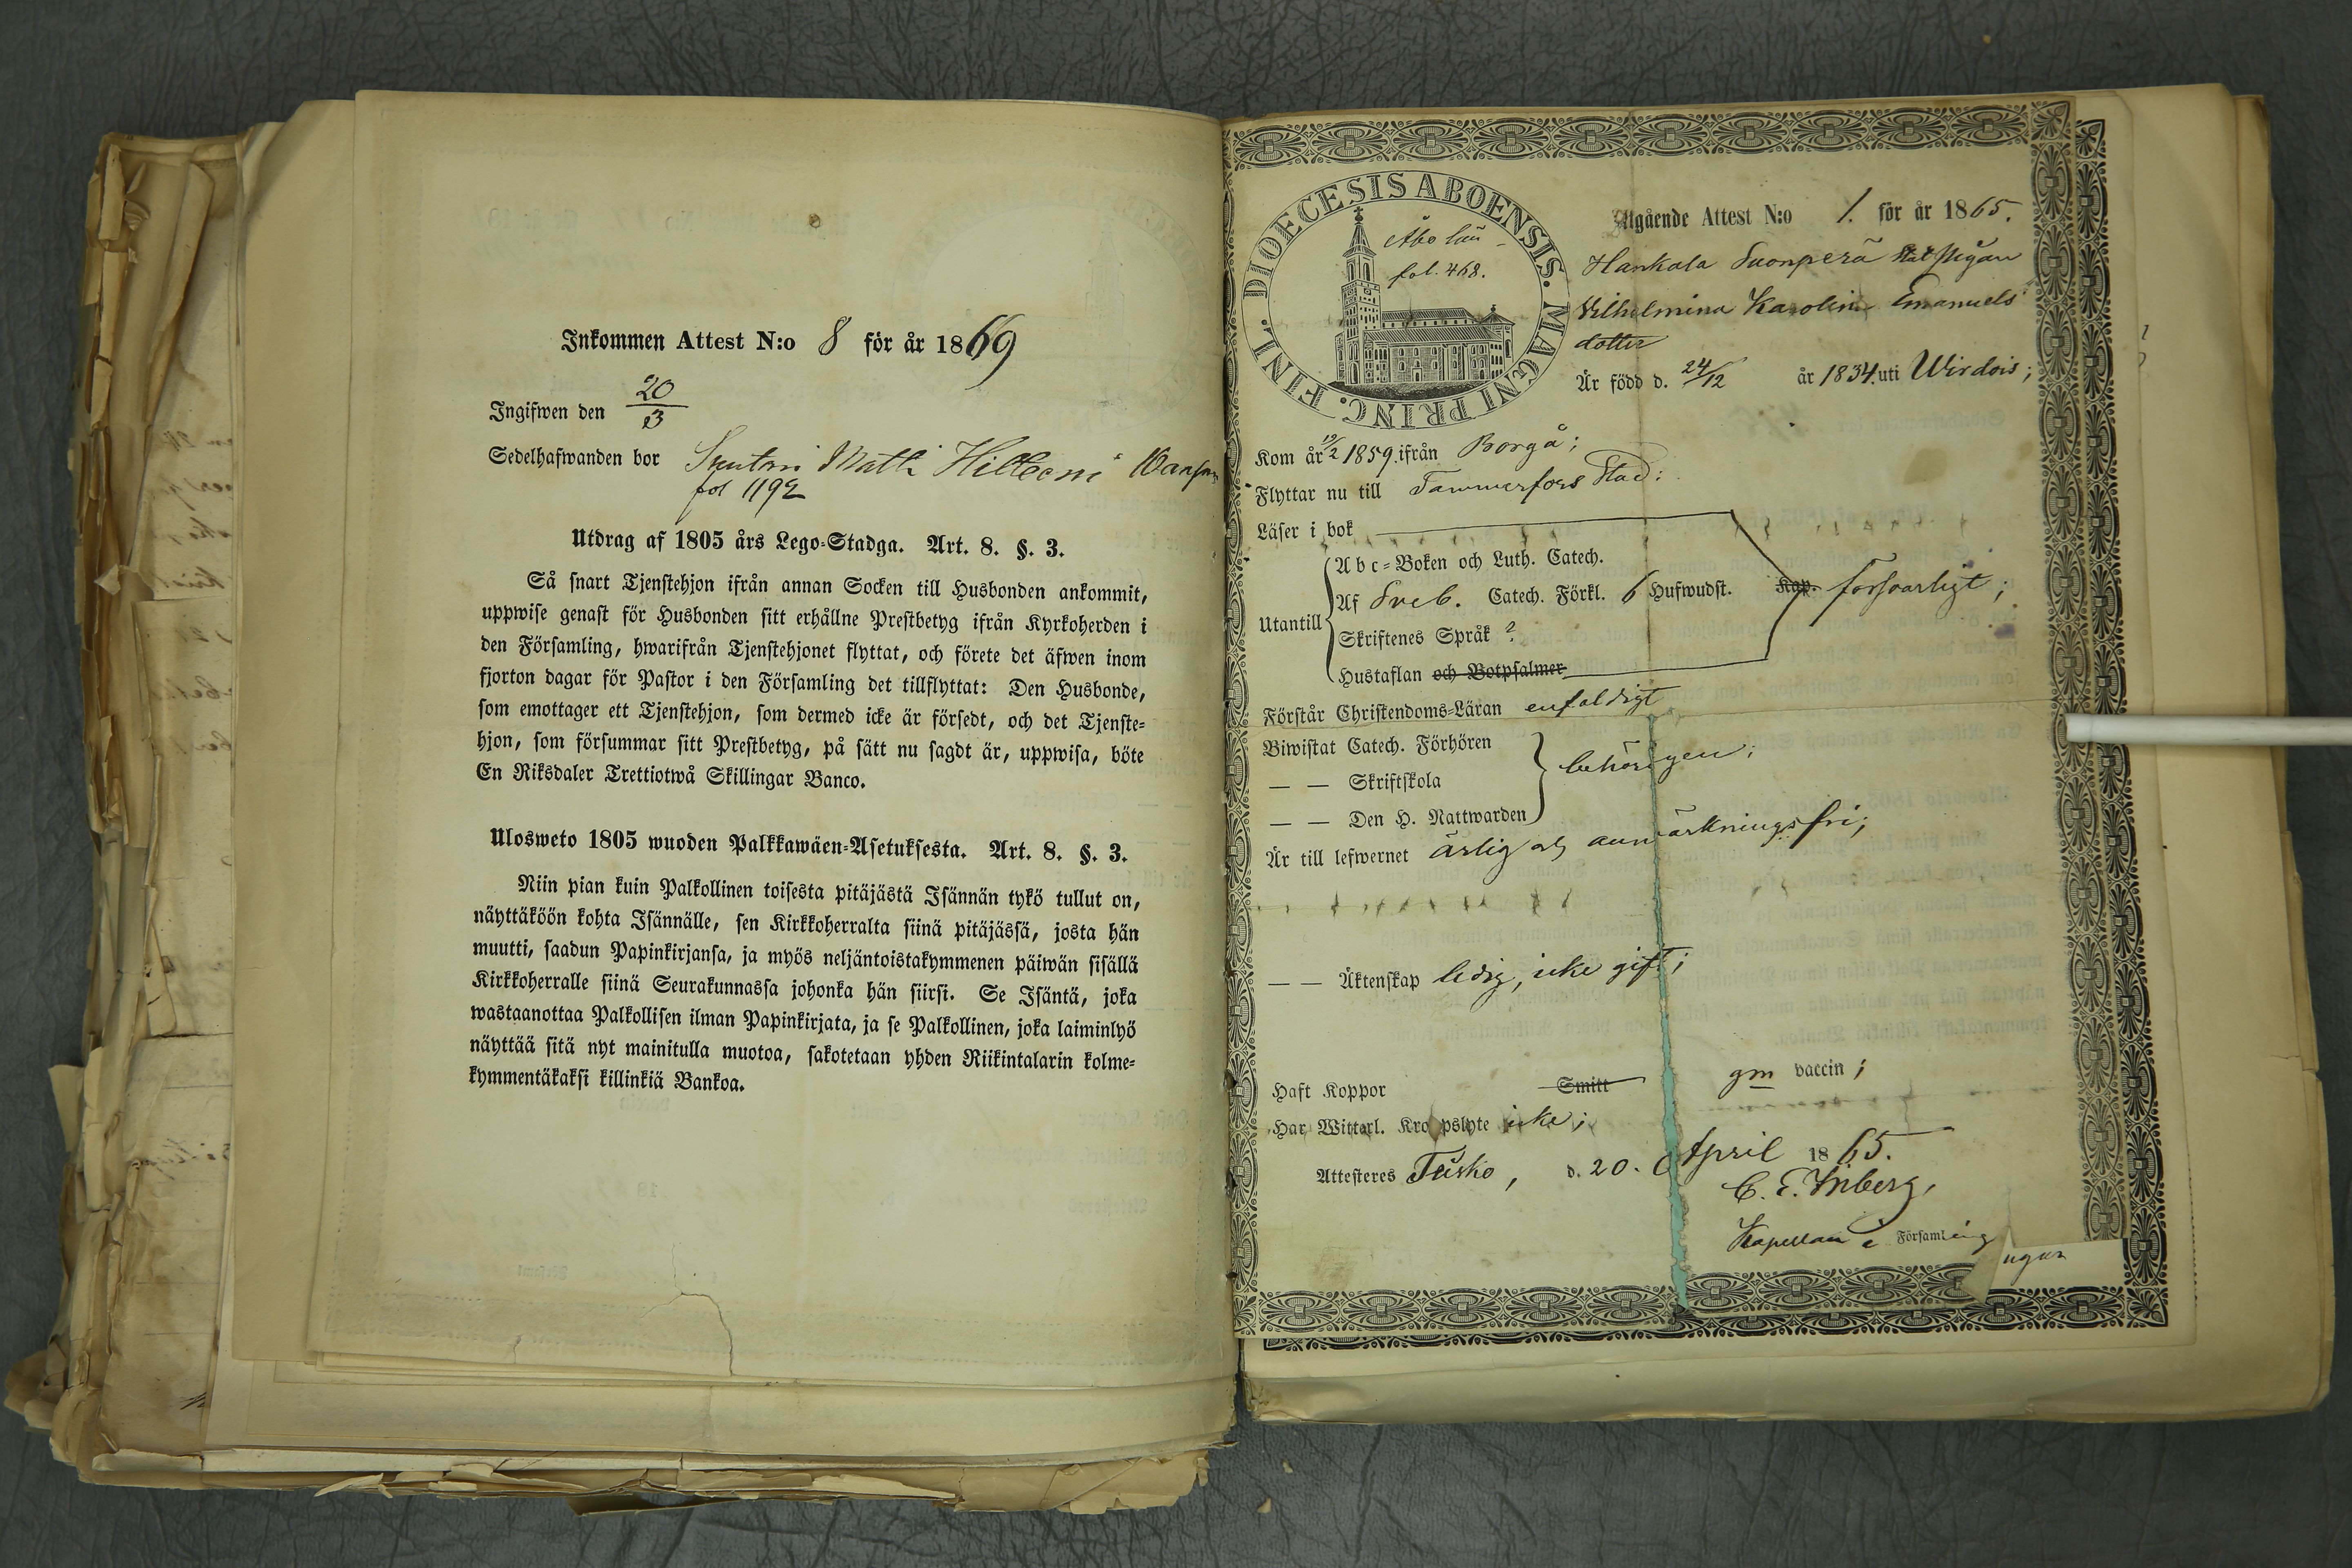 Inkommen Attest N:o 8 för år 1869
Ingifwen den 20/3
Sedelhafwanden bor Matti
fol 1192
Utdrag af 1805 års Lego-Stadga. Art. 8. §. 3.
Så snart Tjenstehjon ifrån annan Socken till Husbonden ankommit,
uppwise genast för Husbonden sitt erhållne Prestbetyg ifrån Kyrkoherden i
den Församling, hwarifrån Tjenstehjonet flyttat, och förete det äfwen inom
fjorton dagar för Pastor i den Församling det tillflyttat: Den Husbonde,
som emottager ett Tjenstehjon, som dermed icke är försedt, och det Tjenste-
hjon, som försummar sitt Prestbetyg, på sätt nu sagdt är, uppwisa, böte
En Riksdaler Trettiotwå Skillingar Banco.
Ulosweto 1805 wuoden Palkkawäen-Asetuksesta. Art. 8. §. 3.
Niin pian kuin Palkollinen toisesta pitäjästä Isännän tykö tullut on,
näyttäköön kohta Isännälle, sen Kirkkoherralta siinä pitäjässä, josta hän
muutti, saadun Papinkirjansa, ja myös neljäntoistakymmenen päiwän sisällä
Kirkkoherralle siinä Seurakunnassa johonka hän siirsi. Se Isäntä, joka
wastaanottaa Palkollisen ilman Papinkirjata, ja se Palkollinen, joka laiminlyö
näyttää sitä nyt mainitulla muotoa, sakotetaan yhden Riikintalarin kolme-
kymmentäkaksi killinkiä Bankoa.
DIOECESIS ABOENSIS. MAGNI PRINC. FINL.
Åbo län
fol. 468.
Utgående Attest N:o 1. för år 1865.
Hankala Suonperä Pigan
Vilhelmina Karolina Emanuels
dotter
Är född d. 24/12 år 1834. uti Wirdois;
Kom år 1859. ifrån Borgå;
Flyttar nu till Tammerfors Stad:
Läser i bok
Abc-Boken och Luth. Catech.
Af Sveb. Catech. Förkl. 6 Hufwudst. Kap. försvarligt;
Utantill
Skriftenes Språk ?
Hustaflan och Botpsalmer
Förstår Christendoms-Läran enfaldigt
Biwistat Catech. Förhören
— — Skriftskola behörigen;
— — Den H. Nattwarden
Är till lefwernet ärlig och anmärkningsfri;
— — Äktenskap ledig, icke gift;
Haft Koppor Smitt gm vaccin;
Har Witterl. Kroppslyte icke;
Attesteres d. 20. April 1865.
C. E. Friberg,
Kapellan i Församling
ugan